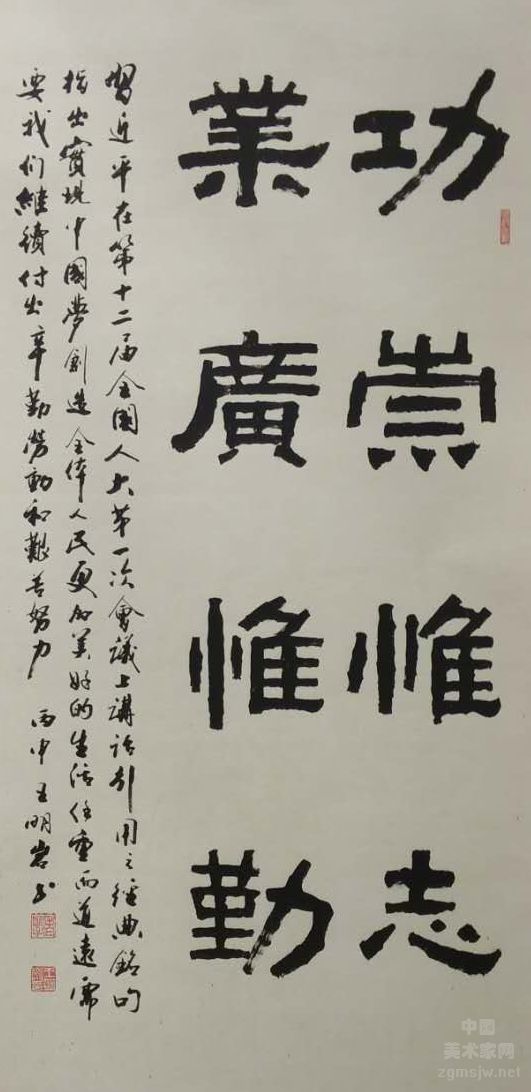 功崇惟志
業廣惟勤
習近平在第十二届全國人大第一次會議上講話引用之經典銘句
指出實現中國夢創造全体人民更加美好的生活任重而道遠需
要我们繼續付出辛勤勞動和艱苦努力 丙申王明岩书
中國
美术家网
zgmsjw.net